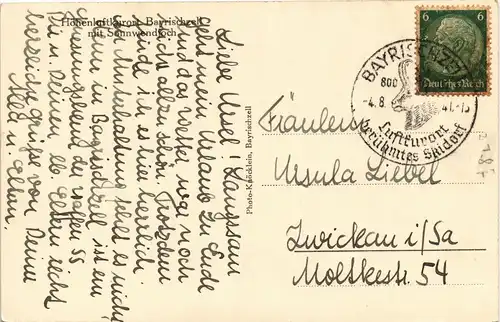 Höhenluftkurort Bayrischzell
mit Sonnwendjoch
Liebe Ursel! Langsam
geht mein Urlaub zu Ende
und das Wetter war noch
nicht allzu schön. Trotzdem
finde ich es hier herrlich.
An Unterhaltung fehlt es nicht
denn in Bayrischzell ist ein
Genesungsheim der Waffen SS.
Dir u. Deinen lb. Eltern recht
herzliche Grüße von Deiner
u. Eltern.
Photo-Knöcklein, Bayrischzell
6 6
Deutsches Reich
BAYRISCHZELL
800
-4.8. 41.-15
Luftkurort
berühmtes Skidorf
Fräulein
Ursula Liebel
Zwickau i/Sa
Moltkestr. 54